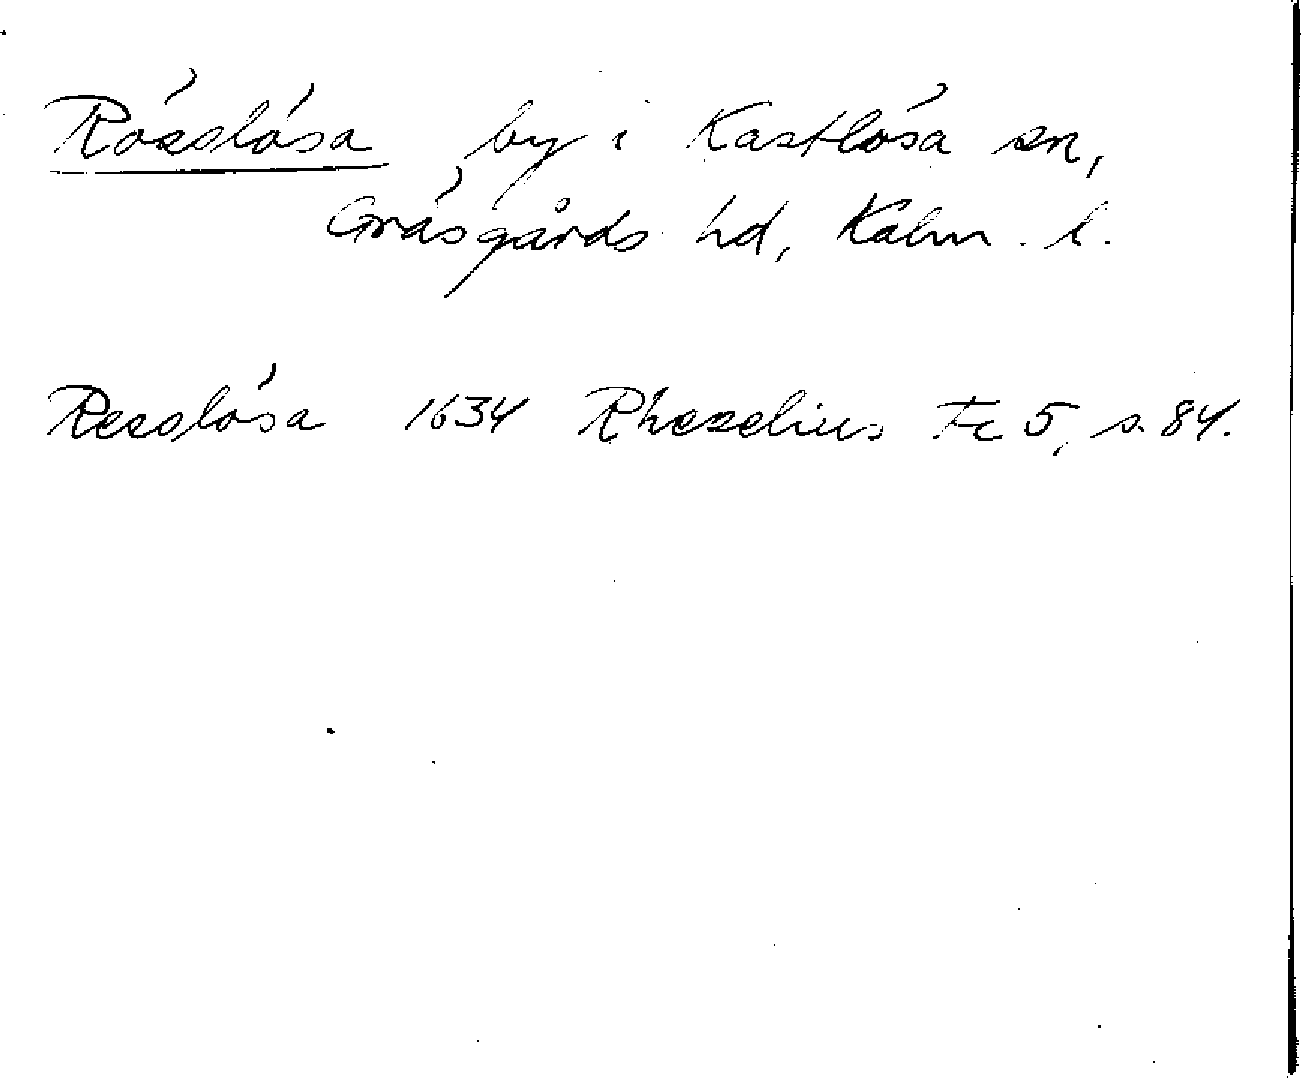 Röselösa by i Kastlösa sn,
Gräsgårds hd, Kalm. l.
Reselösa 1634 Rhezelius Fc 5, s. 84.